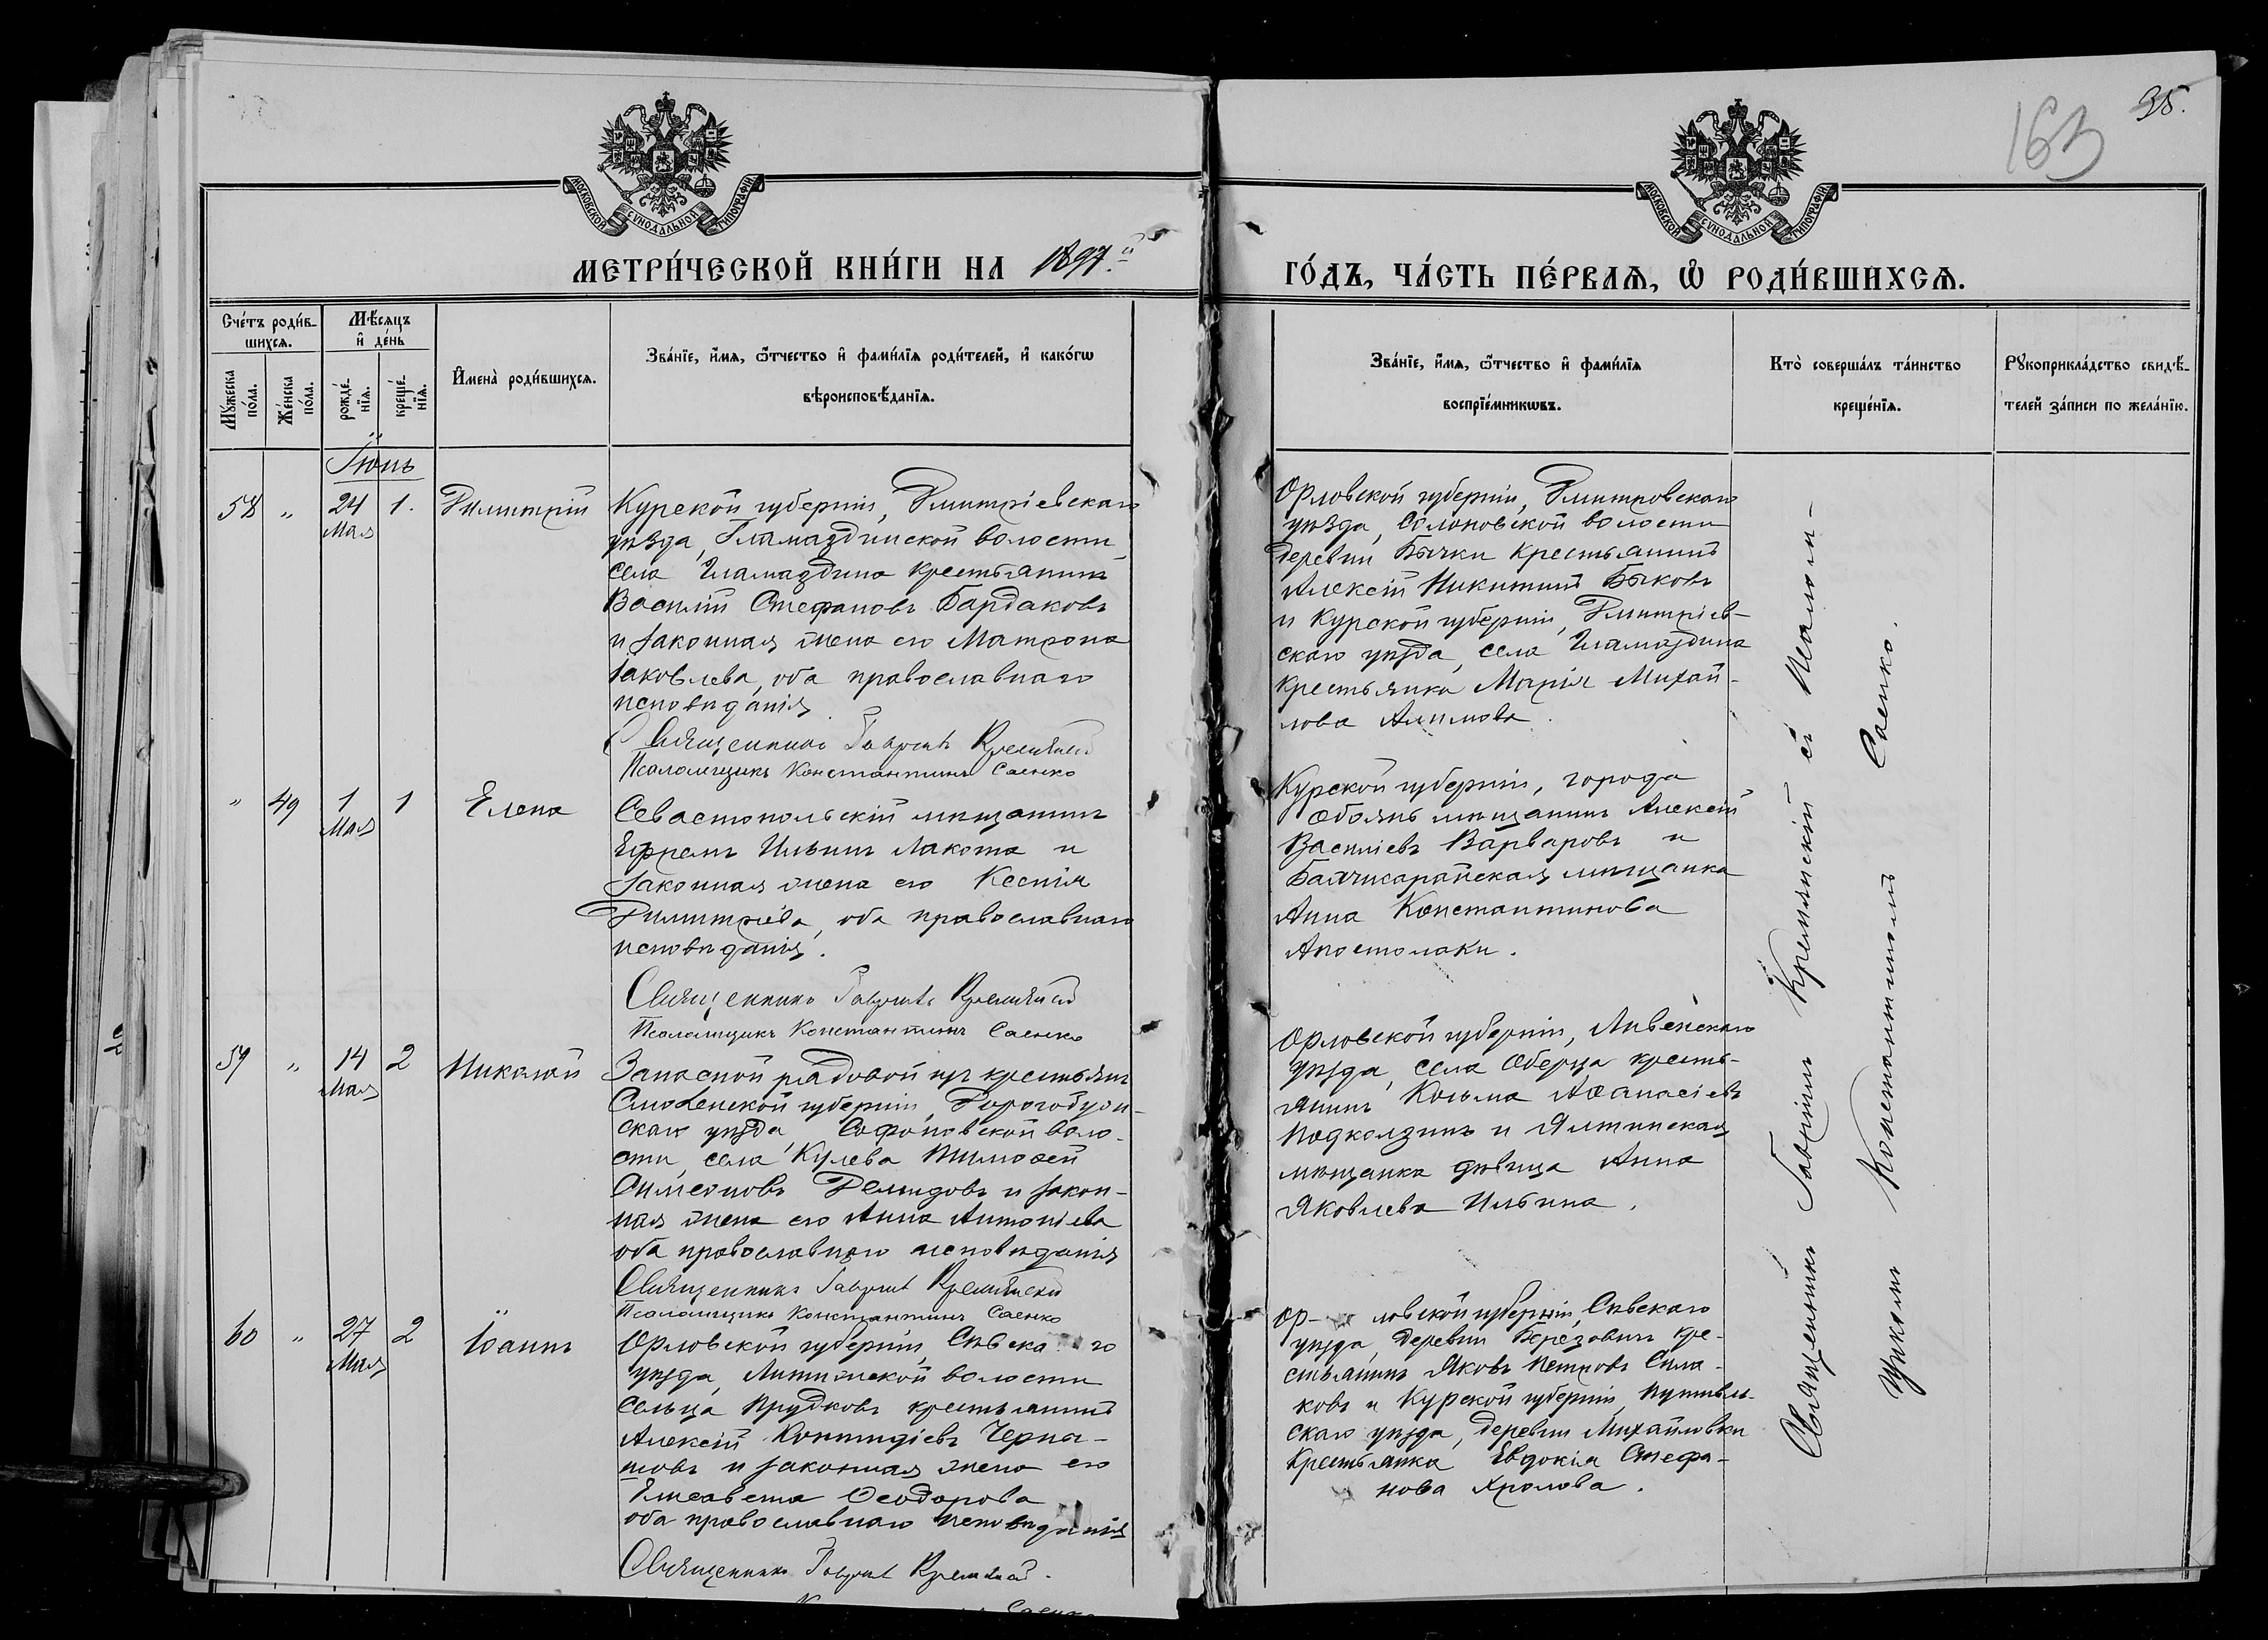 163
35.
МОСКОВСКОЙ СѴНОДАЛЬНОЙ ТИПОГРАФІИ
МОСКОВСКОЙ СѴНОДАЛЬНОЙ ТИПОГРАФІИ
МЕТРИ́ЧЕСКОЙ КНИ́ГИ НА 1897.й
ГО́ДЪ, ЧА́СТЬ ПЕ́РВАѦ, Ѽ РОДИ́ВШИХСѦ.
Сче́тъ роди́в-
шихсѧ.
Мѣ́сѧцъ
и҆ де́нь
Мꙋ́жеска
по́ла.
Же́нска
по́ла.
рожде́-
нїѧ.
креще́-
нїѧ.
И҆мена̀ роди́вшихсѧ.
Зва́нїе, и҆́мѧ, ѻ҆́тчество и҆ фами́лїѧ роди́телей, и҆ како́гѡ
вѣроисповѣ́данїѧ.
Зва́нїе, и҆́мѧ, ѻ҆́тчество и҆ фами́лїѧ
воспрїе́мникѡвъ.
Кто̀ соверша́лъ та́инство
креще́нїѧ.
Рꙋкоприкла́дство свидѣ́-
телей за́писи по жела́нїю.
Іюнь
58 " 24 Мая 1. Димитрій
Курской губерніи, Дмитріевскаго
уѣзда, Гламаздинской волости
села Гламаздина крестьянинъ
Василій Стефановъ Бардаковъ
и законная жена его Матрона
Іаковлева, оба православнаго
исповѣданія.
Священникъ Гавріилъ Кремянскій
Псаломщикъ Константинъ Саенко
Орловской губерніи, Дмитровскаго
уѣзда, Соломовской волости
деревни Бычки крестьянинъ
Алексій Никитинъ Быковъ
и Курской губерніи, Дмитріев-
скаго уѣзда, села Гламаздина
крестьянка Марія Михай-
лова Алимова.
" 49 1 Мая 1 Елена
Севастопольскій мѣщанинъ
Ефремъ Ильинъ Лакота и
законная жена его Ксенія
Димитріева, оба православнаго
исповѣданія.
Священникъ Гавріилъ Кремянскій
Псаломщикъ Константинъ Саенко
Курской губерніи, города
Обоянь мѣщанинъ Алексій
Василіевъ Варваровъ и
Бахчисарайская мѣщанка
Анна Константинова
Апостолаки.
59 " 14 Мая 2 Николай
Запасной рядовой изъ крестьянъ
Смоленской губерніи, Дорогобуж-
скаго уѣзда, Сафоновской воло-
сти, села Кулева Тимоѳей
Симеоновъ Демидовъ и закон-
ная жена его Анна Антоніева
оба православнаго исповѣданія
Священникъ Гавріилъ Кремянскій
Псаломщикъ Константинъ Саенко
Орловской губерніи, Ливенскаго
уѣзда, села Оберца кресть-
янинъ Козьма Аѳанасіевъ
Подколзинъ и Ялтинская
мѣщанка дѣвица Анна
Яковлева Ильина.
60 " 27 Мая 2 Іоаннъ
Орловской губерніи, Сѣвскаго
уѣзда, Литижской волости
сельца Прудковъ крестьянинъ
Алексій
и законная жена его
Елисавета Ѳеодорова
оба православнаго исповѣданія
Священникъ Гавріилъ Кремянскій.
Саенко
Ор-ловской губерніи, Сѣвскаго
уѣзда, деревни Березович кре-
стьянинъ Яковъ Петровъ Сила-
ковъ и Курской губерніи, Путивль-
скаго уѣзда, деревни Михайловки
крестьянка Евдокія Стефа-
нова Хролова.
Священникъ Гавріилъ Кремянскій съ Псалом-
щикомъ Константиномъ Саенко.